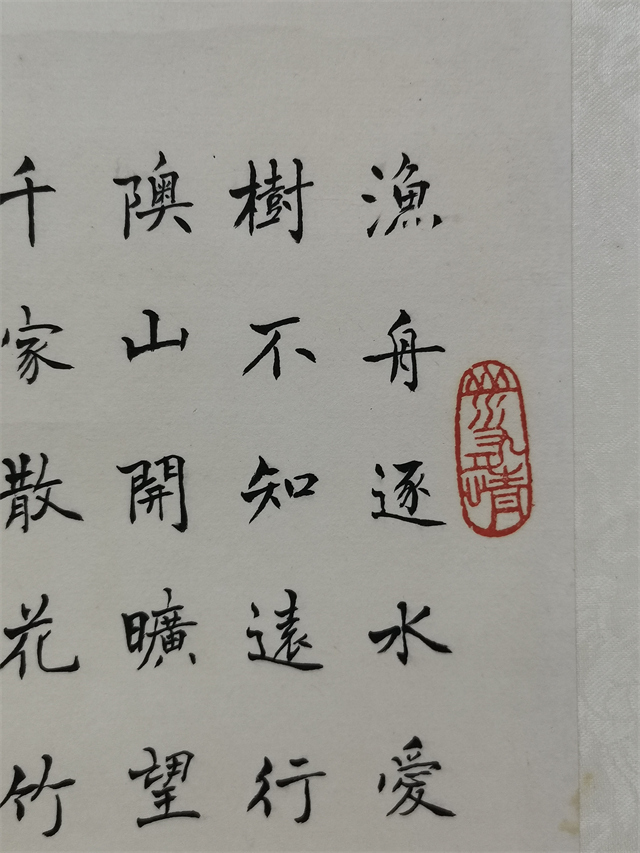 漁舟逐水愛
樹不知遠行
隩山開曠望
千家散花竹